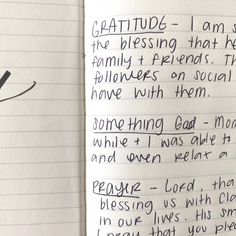 GRATITUDE - I am s
the blessing that he
family + friends. Th
followers on social
have with them.
Something God - Mon
while + I was able to
and even relax a
PRAYER - Lord, tha
blessing us with Cla
in our lives. His sm
I pray that you plea